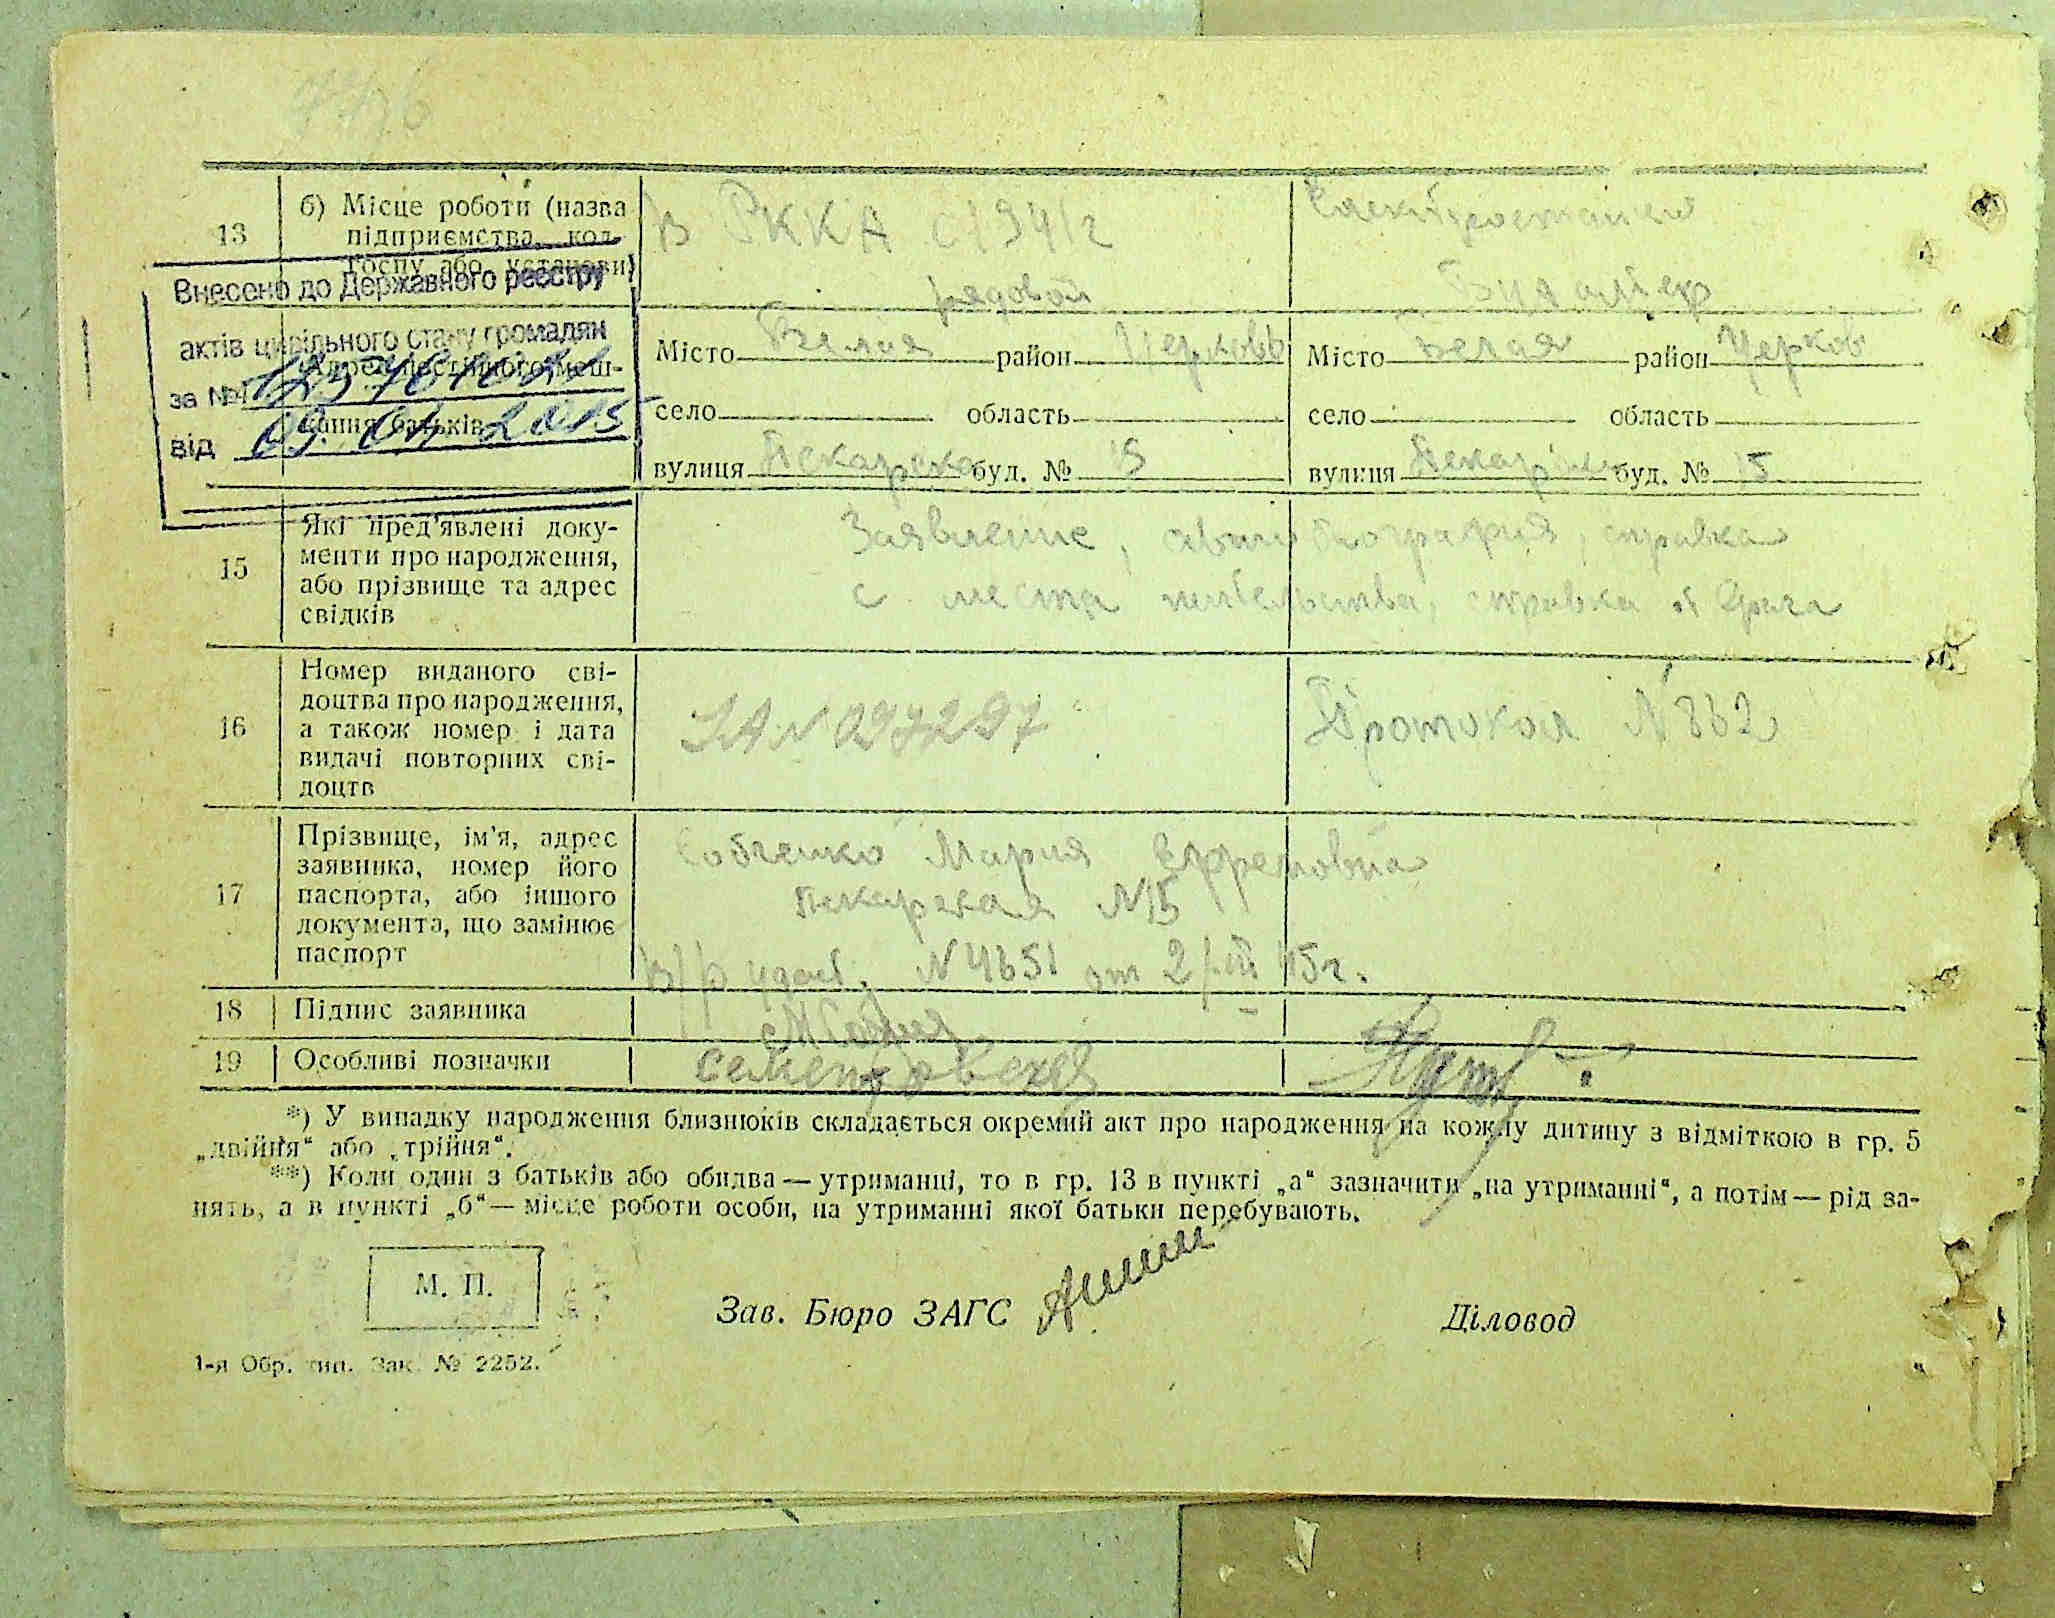 13
б) Місце роботи (назва
підприємства, кол-
госпу або установи)
В РККА с/1941г
рядовой
Електростанция
Бухгалтер
Внесено до Державного реєстру
актів цивільного стану громадян
за №
від 09. 04 2015
Адрес постійного меш-
кання батьків
Місто Белая район Церковь
село область
вулиця Пекарская буд. № 15
Місто Белая район Церков
село область
вулиця Пекарская буд. № 15
15
Які пред'явлені доку-
менти про народження,
або прізвище та адрес
свідків
Заявление, автобиография, справка
с места жительства, справка от врача
16
Номер виданого сві-
доцтва про народження,
а також номер і дата
видачі повторних сві-
доцтв
N 097297
Протокол N 862
17
Прізвище, ім'я, адрес
заявника, номер його
паспорта, або іншого
документа, що замінює
паспорт
Собченко Мария Ефремовна
Пекарская N15
в/р удост. N 4651 от 2/III 45г.
18
Підпис заявника
19
Особливі позначки
*) У випадку народження близнюків складається окремий акт про народження на кожну дитину з відміткою в гр. 5
„двійня“ або „трійня“.
**) Коли один з батьків або обидва — утриманці, то в гр. 13 в пункті „а“ зазначити „на утриманні“, а потім — рід за-
нять, а в пункті „б“ — місце роботи особи, на утриманні якої батьки перебувають.
М. П.
Зав. Бюро ЗАГС
Діловод
1-я Обр. тип. Зак. № 2252.